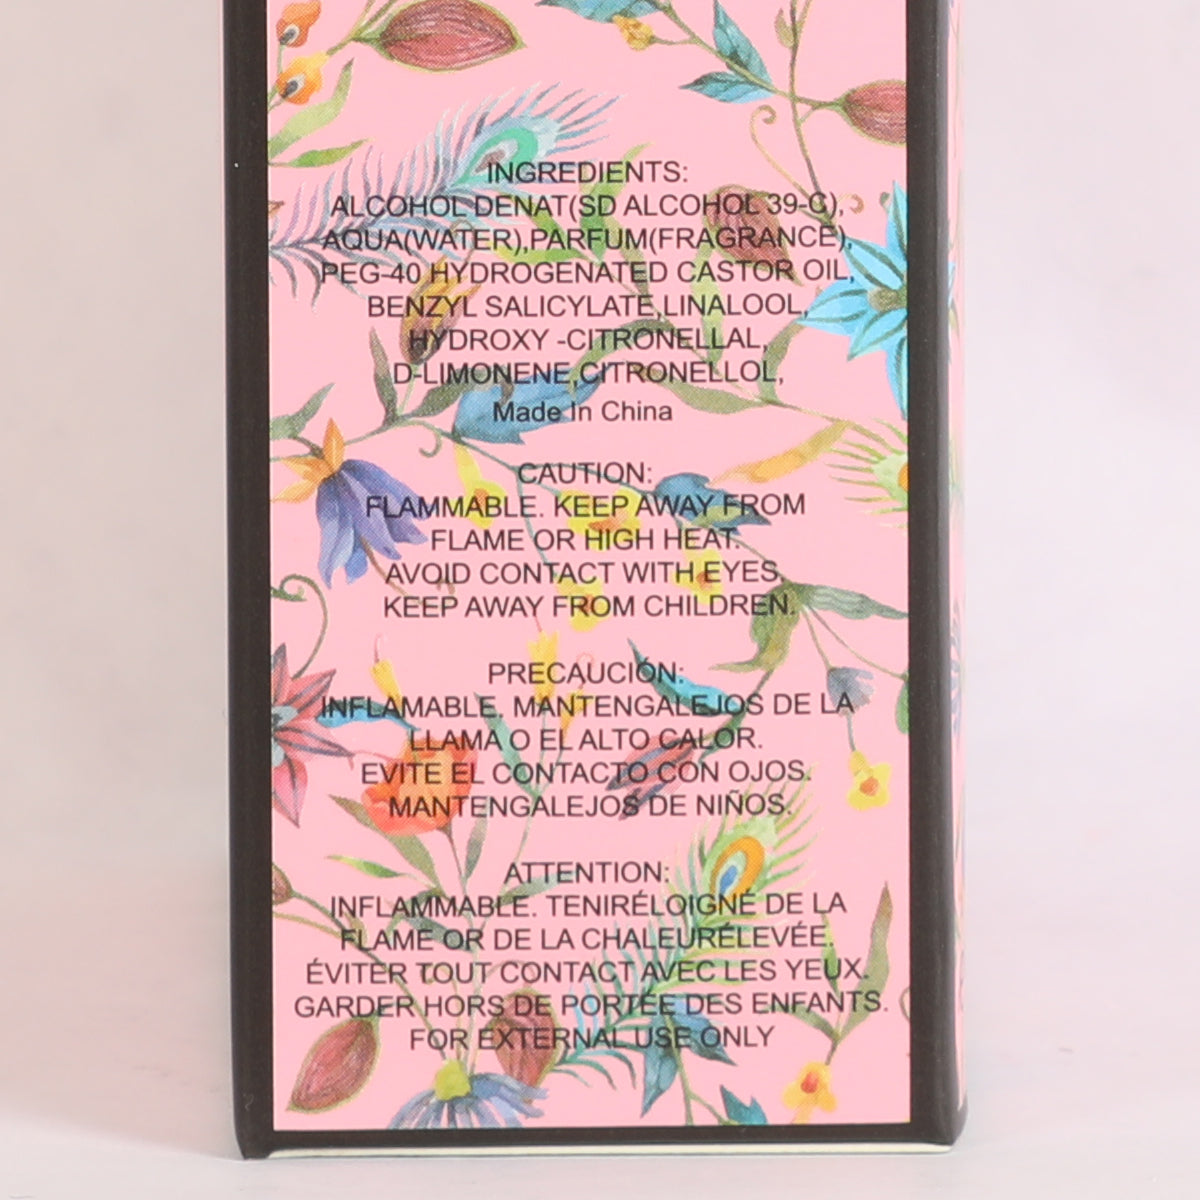 INGREDIENTS:
ALCOHOL DENAT(SD ALCOHOL 39-C),
AQUA(WATER),PARFUM(FRAGRANCE),
PEG-40 HYDROGENATED CASTOR OIL,
BENZYL SALICYLATE,LINALOOL,
HYDROXY -CITRONELLAL,
D-LIMONENE,CITRONELLOL,
Made In China
CAUTION:
FLAMMABLE. KEEP AWAY FROM
FLAME OR HIGH HEAT.
AVOID CONTACT WITH EYES.
KEEP AWAY FROM CHILDREN.
PRECAUCIÓN:
INFLAMABLE. MANTENGALEJOS DE LA
LLAMA O EL ALTO CALOR.
EVITE EL CONTACTO CON OJOS.
MANTENGALEJOS DE NIÑOS.
ATTENTION:
INFLAMMABLE. TENIRÉLOIGNÉ DE LA
FLAME OR DE LA CHALEURÉLEVÉE.
ÉVITER TOUT CONTACT AVEC LES YEUX.
GARDER HORS DE PORTÉE DES ENFANTS.
FOR EXTERNAL USE ONLY